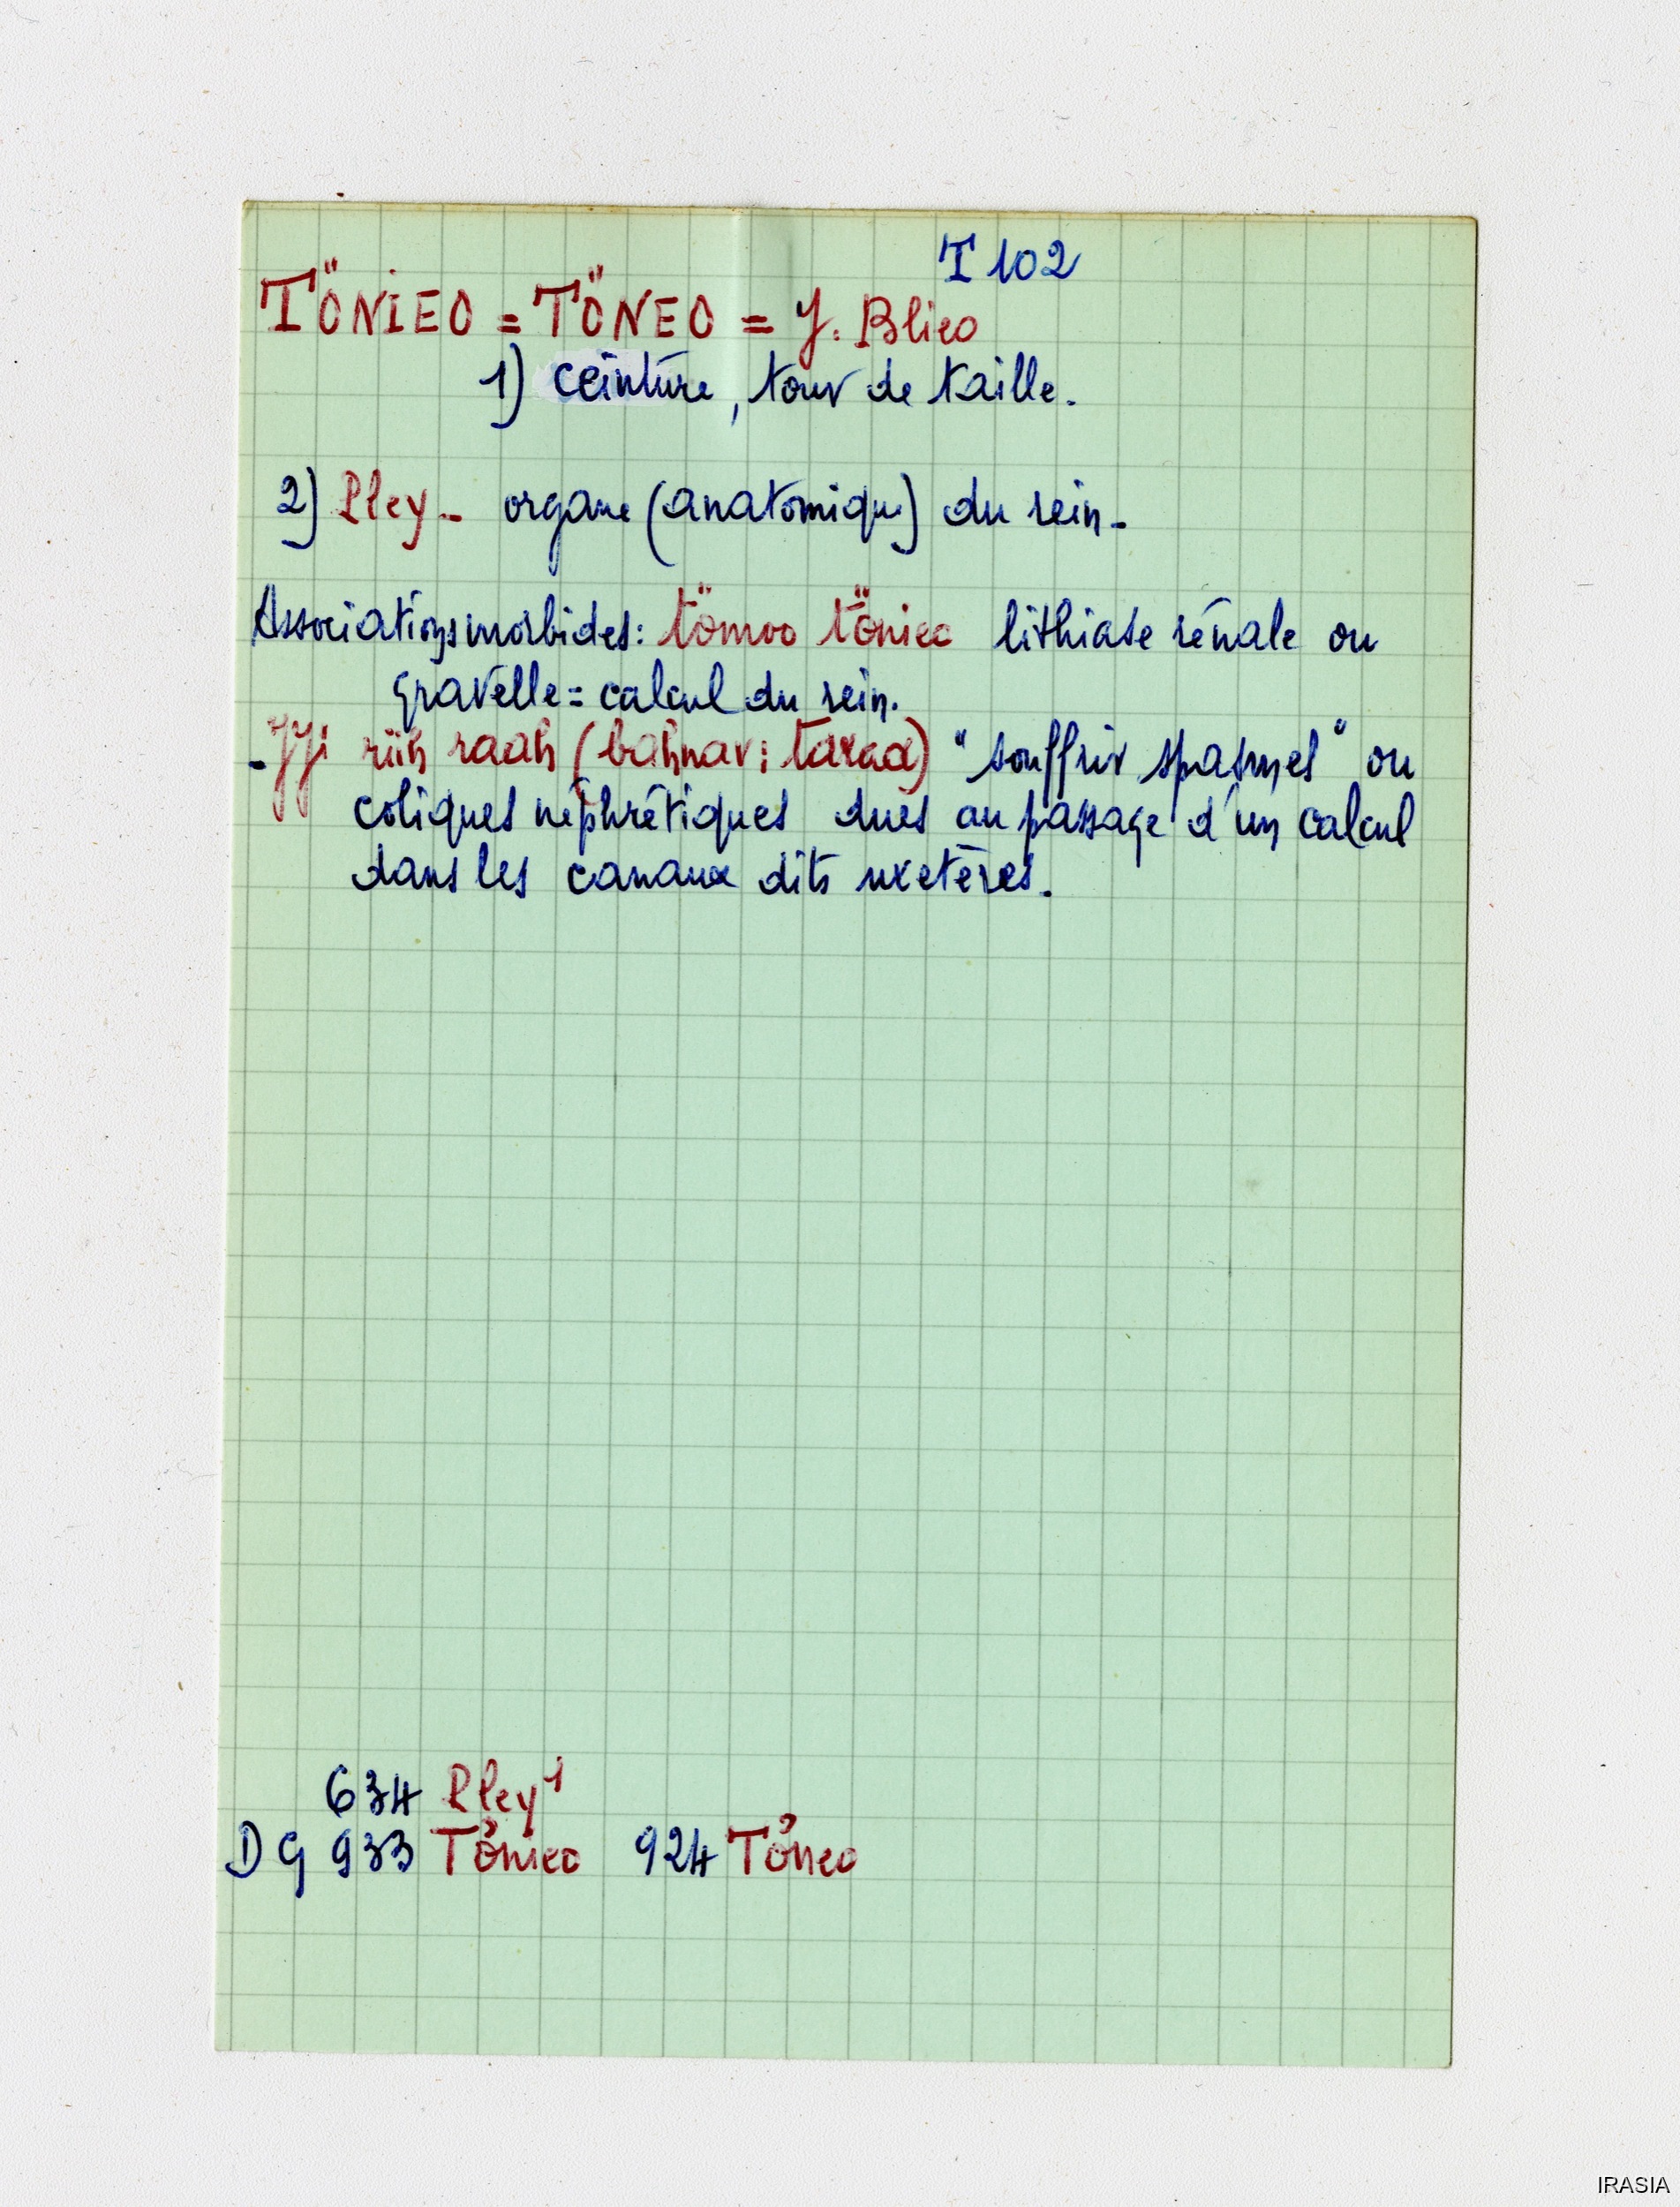 T 102
TÖNIEO = TÖNEO = Y. Blieo
1) ceinture, tour de taille.
2) Pley - organe (anatomique) du rein -
Associations morbides: tömoo tönieo lithiase rénale ou
gravelle = calcul du rein.
- JJi rüh raah (bahnar: taraa) "souffrir spasmes" ou
coliques néphrétiques dues au passage d'un calcul
dans les canaux dits uretères.
634 Pley¹
DG 933 Tönieo 924 Töneo
IRASIA